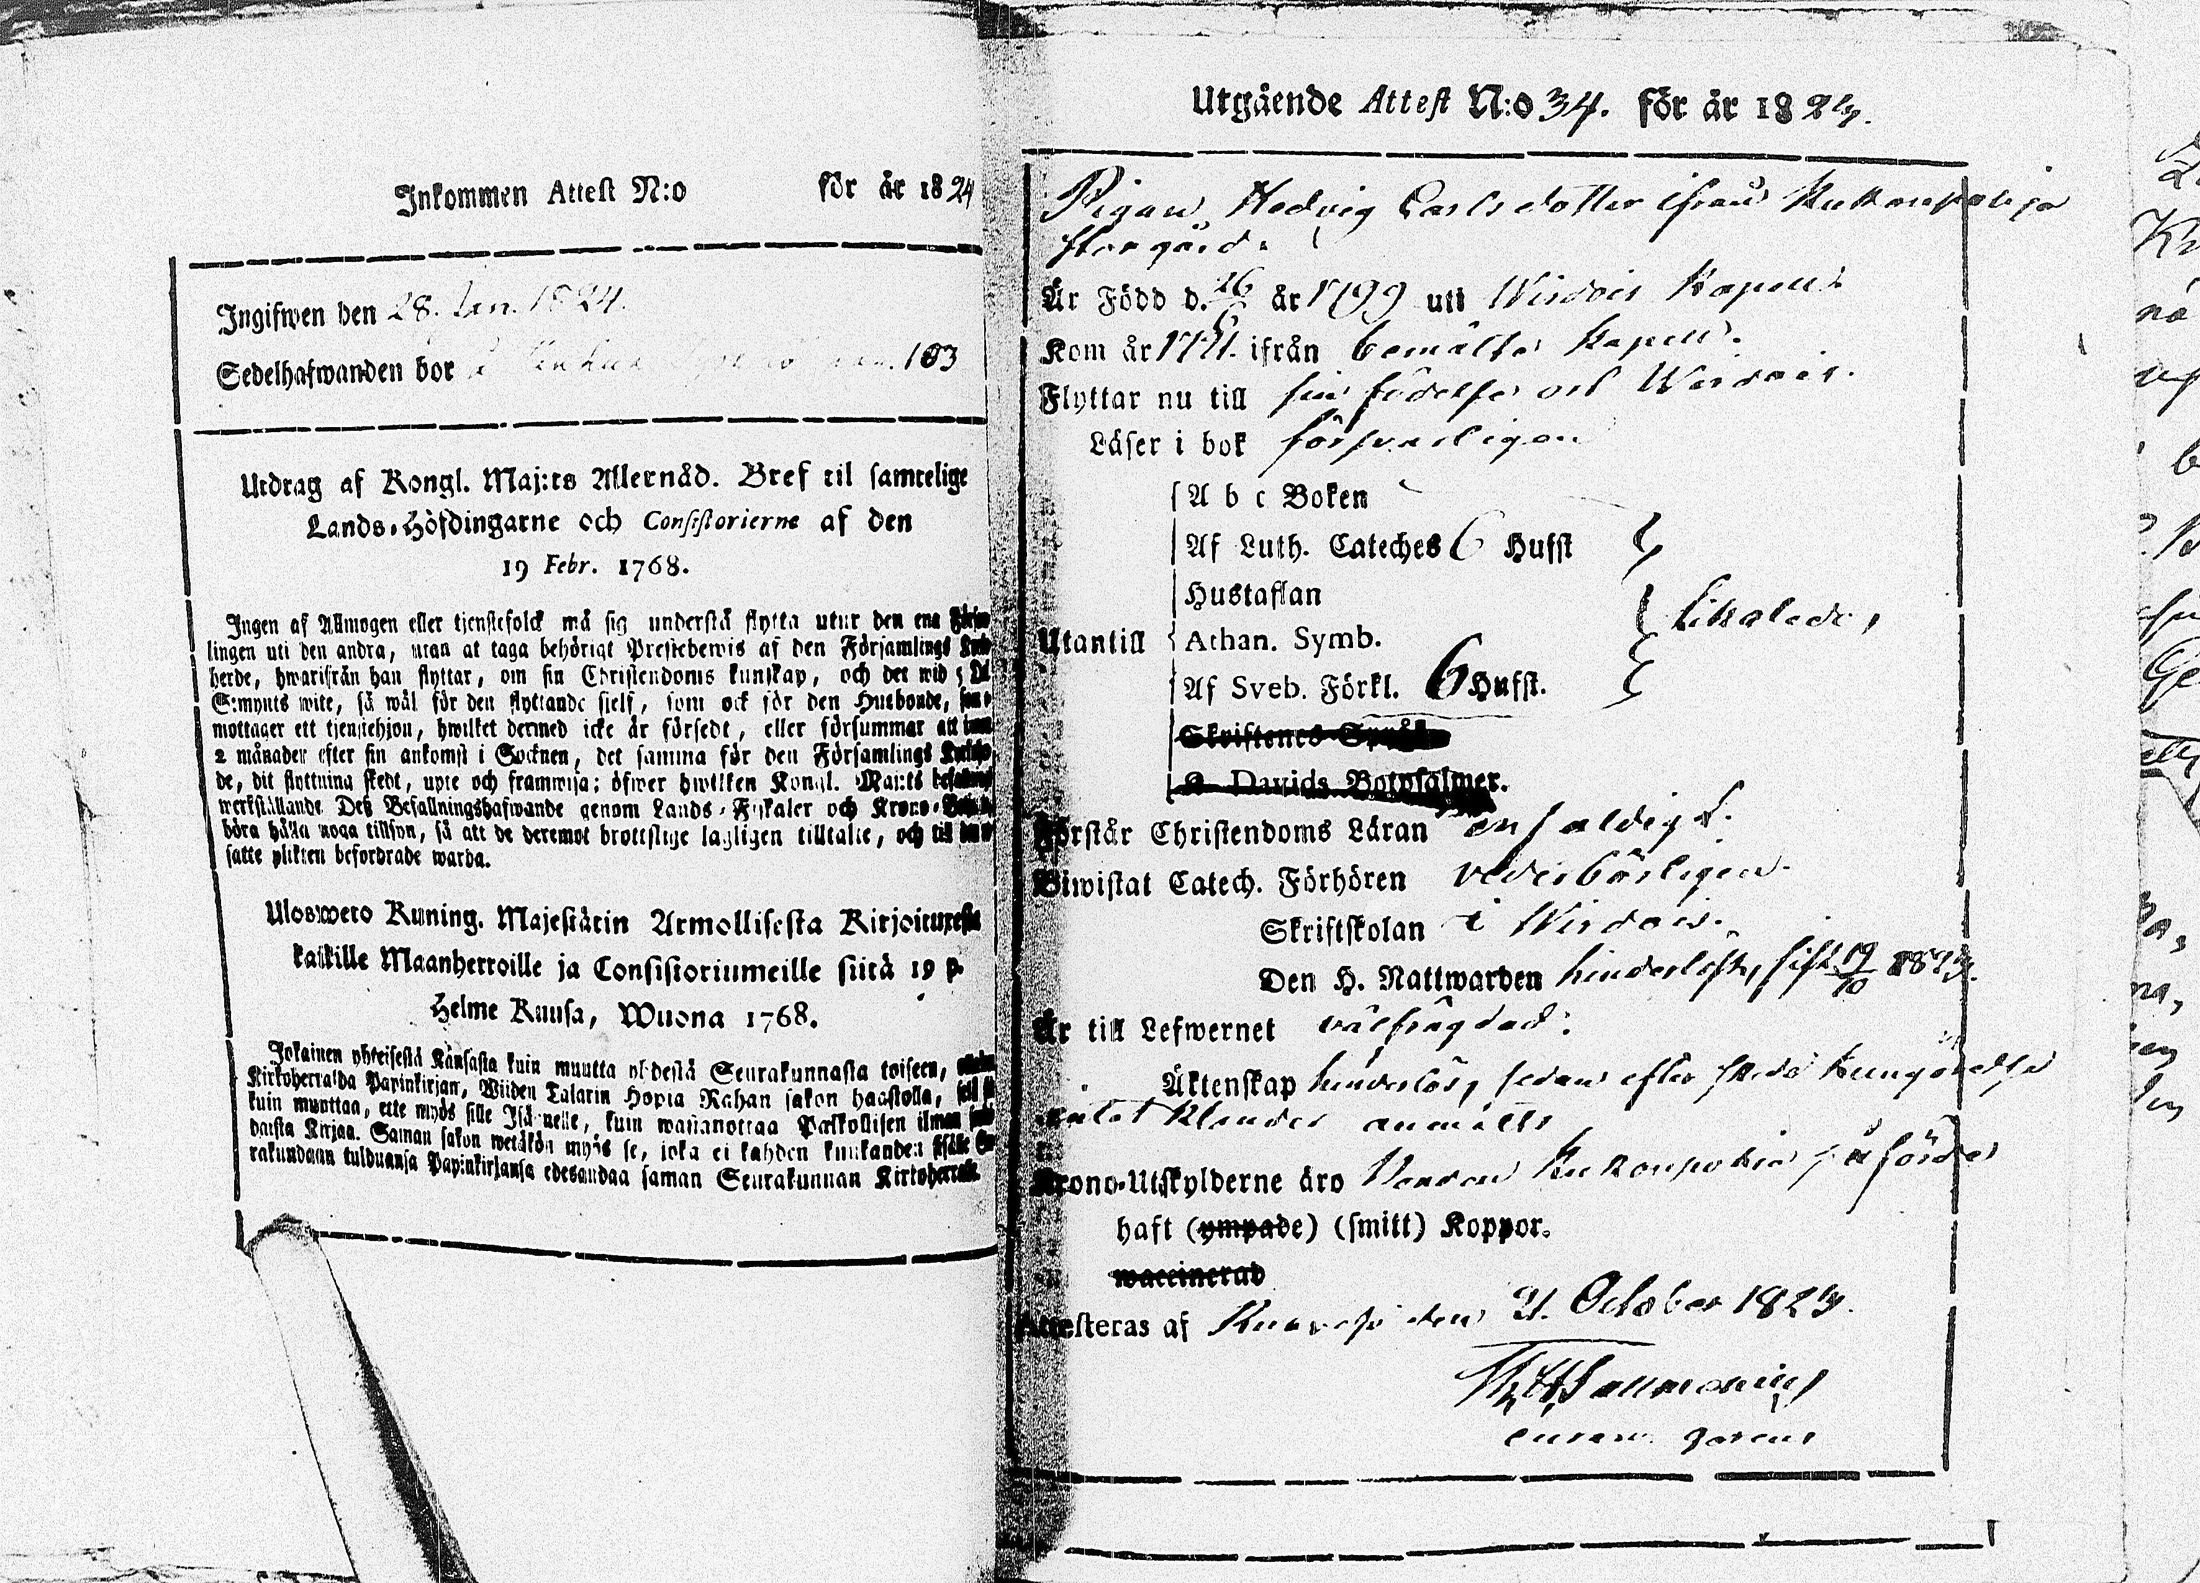 Inkommen Attest N:o för år 1824
Ingifwen den 28. Jan. 1824.
Sedelhafwanden bor 103
Utdrag af Kongl. Maj:ts Allernåd. Bref til samtelige
Lands-Höfdingarne och Consistorierne af den
19 Febr. 1768.
Ingen af Allmogen eller tjenstefolck må sig understå flytta utur den ena
lingen uti den andra, utan at taga behörigt Prestebewis af den Församlings
herde, hwarifrån han flyttar, om sin Christendoms kunskap, och det wid 5
S:mynts wite, så wäl för den flyttande sielf, som ock för den Husbonde, som
mottager ett tjenstehjon, hwilket dermed icke är försedt, eller försummar att
2 månader efter sin ankomst i Socknen, det samma för den Församlings
de, dit flyttning skedt, upte och framwisa; öfwer hwilken Kongl. Maj:ts
werkställande Deß Befallningshafwande genom Lands-Fiskaler och Krono-
böra hålla noga tillsyn, så att de deremot brottslige lagligen tilltalte, och til
satte plikten befordrade warda.
Ulosweto Kuning. Majestätin Armollisesta Kirjoituxesta
kaikille Maanherroille ja Consistoriumeille siitä 19 p.
Helme Kuusa, Wuona 1768.
Jokainen yhteisestä Kansasta kuin muutta yhdestä Seurakunnasta toiseen,
Kirkoherralda Papinkirjan, Wiiden Talarin Hopia Rahan sakon haastolla,
kuin muuttaa, ette myös sille Isännelle, kuin wastanottaa Palkollisen ilman
daista Kirjaa. Saman sakon wetäkön myös se, joka ei kahden kuukauden sisälle
rakundaan tulduansa Papinkirjansa edesandaa saman Seurakunnan Kirkoherralle.
Utgående Attest N:o 34. för år 1823.
Pigan Hedvig Carlsdotter ifrån
Storgård.
Är Född d. 26 år 1799 uti Wirdois Kapell
Kom år ifrån bemälte Kapell.
Flyttar nu till sin födelse ort Wirdois.
Läser i bok försvarligen
A b c Boken
Af Luth. Cateches 6 Hufst
Hustaflan
Utantill Athan. Symb. likaledes,
Af Sveb. Förkl. 6 Hufst.
Skriftenes Språk
Davids Botpsalmer.
Förstår Christendoms Läran enfaldigt.
Biwistat Catech. Förhören vederbörligen.
Skriftskolan i Wirdois.
Den H. Nattwarden hinderlöst, sist 19/10 1823.
Är till Lefwernet välfrägdad.
Äktenskap hinderlös, sedan efter skedd kungörelse
intet klander anmälts
Krono-Utskylderne äro påförde
haft (ympade) (smitt) Koppor.
waccinerad
Attesteras af den 21. October 1823.